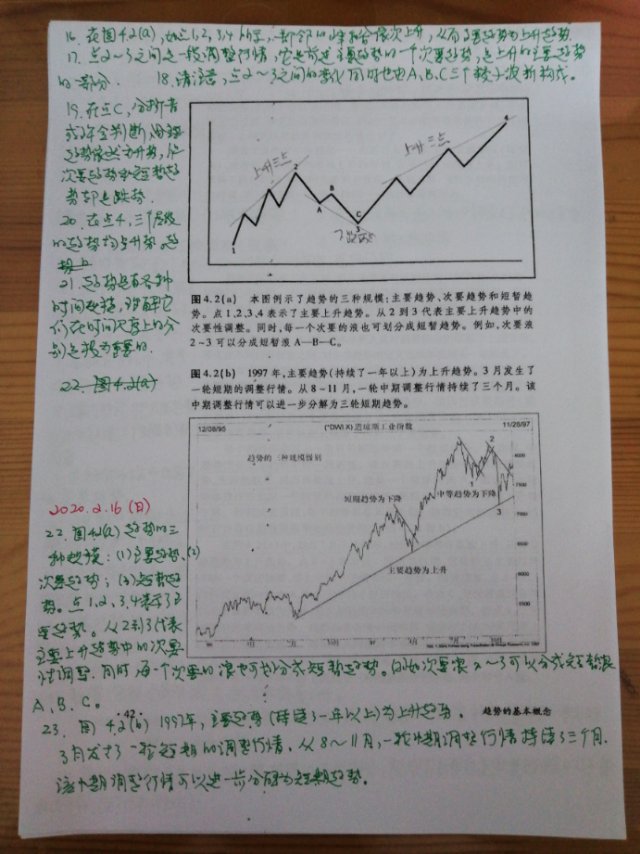 16. 在图4.2(a),如点1,2,3,4所示,一部邻的峰和谷依次上升,从而主要趋势为上升趋势
17. 点2~3之间是一段调整行情,它是前述主要趋势的一个次要趋势,是上升的主要趋势
的一部分. 18. 请注意,点2~3之间的变化同时也由A、B、C三个较小波折构成。
19. 在点C,分析者
或许会判断,主要
趋势依然为升势,但
次要趋势和短暂趋
势却是跌势.
20. 在点4,三个层级
的趋势均为升势。
21. 趋势具有各种
时间规模,理解它
们在时间尺度上的分
别是极为重要的.
22. 图4.2(a)
1 2 3 4 A B C
图 4.2(a) 本图例示了趋势的三种规模:主要趋势、次要趋势和短暂趋
势。点 1,2,3,4 表示了主要上升趋势。从 2 到 3 代表主要上升趋势中的
次要性调整。同时,每一个次要的浪也可划分成短暂趋势。例如,次要浪
2~3 可以分成短暂浪 A—B—C。
图 4.2(b) 1997 年,主要趋势(持续了一年以上)为上升趋势。3 月发生了
一轮短期的调整行情。从 8~11 月,一轮中期调整行情持续了三个月。该
中期调整行情可以进一步分解为三轮短期趋势。
12/08/95 (^DWI X) 道琼斯工业份数 11/26/97
趋势的三种规模级别
短期趋势为下降
中等趋势为下降
主要趋势为上升
1 2 3
2020.2.16 (日)
22. 图4.2(a) 趋势的三
种规模:(1)主要趋势、(2)
次要趋势;(3)短暂趋
势。点1、2、3、4表示了主
要趋势。从2到3代表
主要上升趋势中的次要
性调整. 同时每一个次要的浪也可划分成短暂趋势。例如次要浪2~3可以分成短暂浪
A、B、C。
趋势的基本概念
23. 图4.2(b) 1997年,主要趋势(持续了一年以上)为上升趋势.
3月发生了一轮短期的调整行情,从8~11月,一轮中期调整行情持续了三个月.
该中期调整行情可以进一步分解为短期趋势。